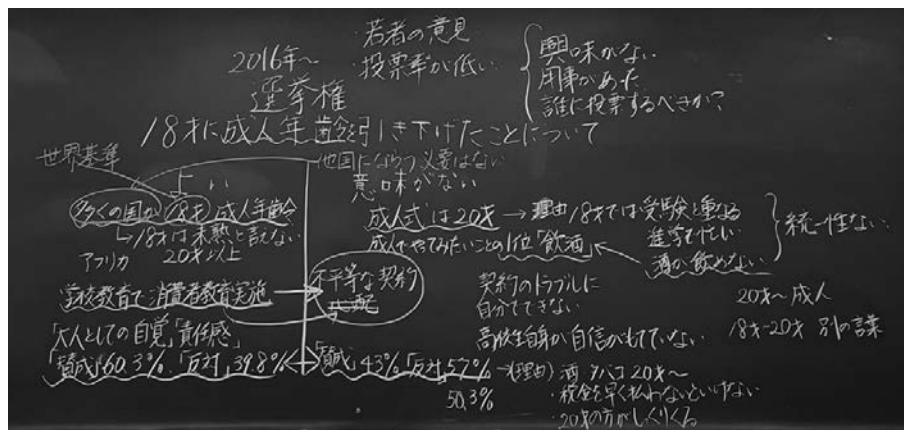 2016年〜
選挙権
・若者の意見
・投票率が低い
興味がない
用事があった
誰に投票するべきか?
18才に成人年齢引き下げたことについて
世界基準
よい
多くの国が18才成人年齢
↳18才は未熟と言えない
アフリカ 20才以上
学校教育で消費者教育実施
「大人としての自覚」「責任感」
「賛成」60.3%「反対」39.8%
他国にならう必要はない
意味がない
成人式は20才→理由18才では受験と重なる
進学で忙しい
酒が飲めない
統一性ない
成人でやってみたいことの1位「飲酒」
不平等な契約
契約のトラブルに
自分でできない
高校生自身が自信がもてていない
20才〜成人
18才-20才 別の言葉
「賛成」43%「反対」57%→(理由)酒 タバコ 20才〜
50.3%
・税金を早く払わないといけない
・20才の方がしっくりくる